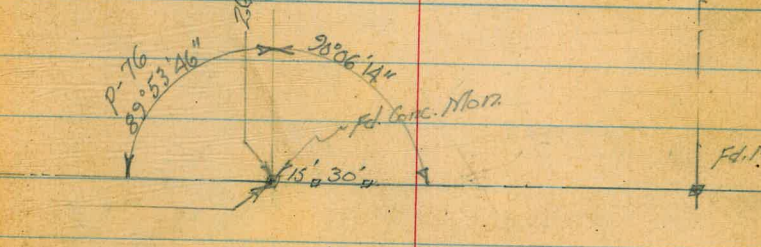 P-76
89°53'46"
90°06'14"
Fd. Conc. Mon.
15' 30'
Fd.